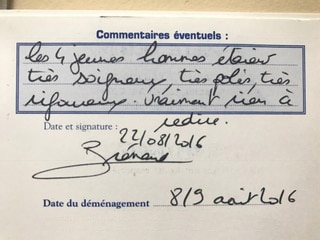 Commentaires éventuels :
les 4 jeunes hommes étaient
très soigneux, très polis, très
rigoureux. Vraiment rien à
redire.
Date et signature :
22/08/2016
Date du déménagement 8/9 août 2016